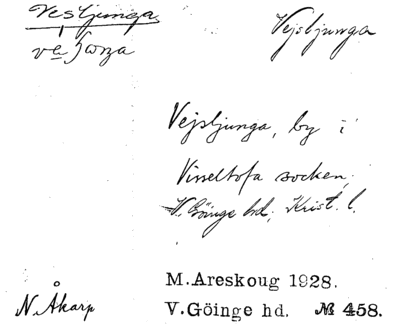 Vesljunga
Vejsljunga
Vejsljunga, by i
Visseltofta socken,
V. Göinge hd, Krist. l.
M.Areskoug 1928.
N. Åkarp
V.Göinge hd. № 458.